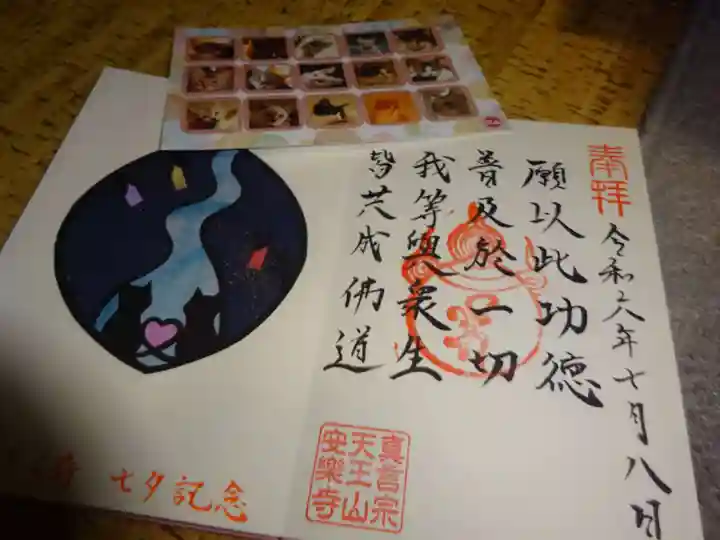 奉拝
令和六年七月八日
願以此功徳
普及於一切
我等與衆生
皆共成佛道
真言宗
天王山
安樂寺
寺 七夕記念